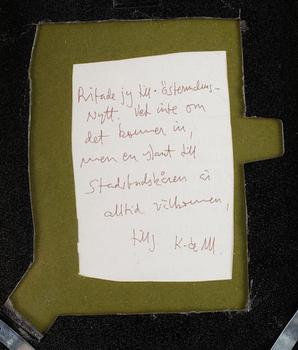 Ritade jg till Östermalms-
Nytt. Vet inte om
det kommer in,
men en slant till
Stadsbudskåren är
alltid välkommen,
K. de M.